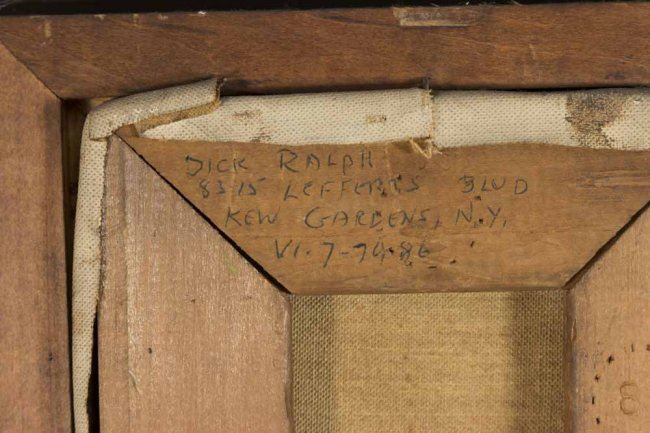 DICK RALPH
8315 LEFFERTS BLVD
KEW GARDENS, N.Y.
VI. 7-7486
8